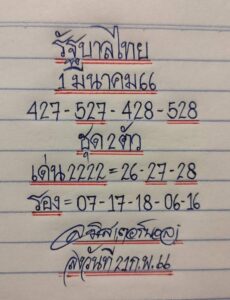 รัฐบาลไทย
1 มีนาคม 66
427-527-428-528
ชุด 2 ตัว
เด่น 2222=26-27-28
รอง=07-17-18-06-16
ส่งวันที่ 21 ก.พ. 66